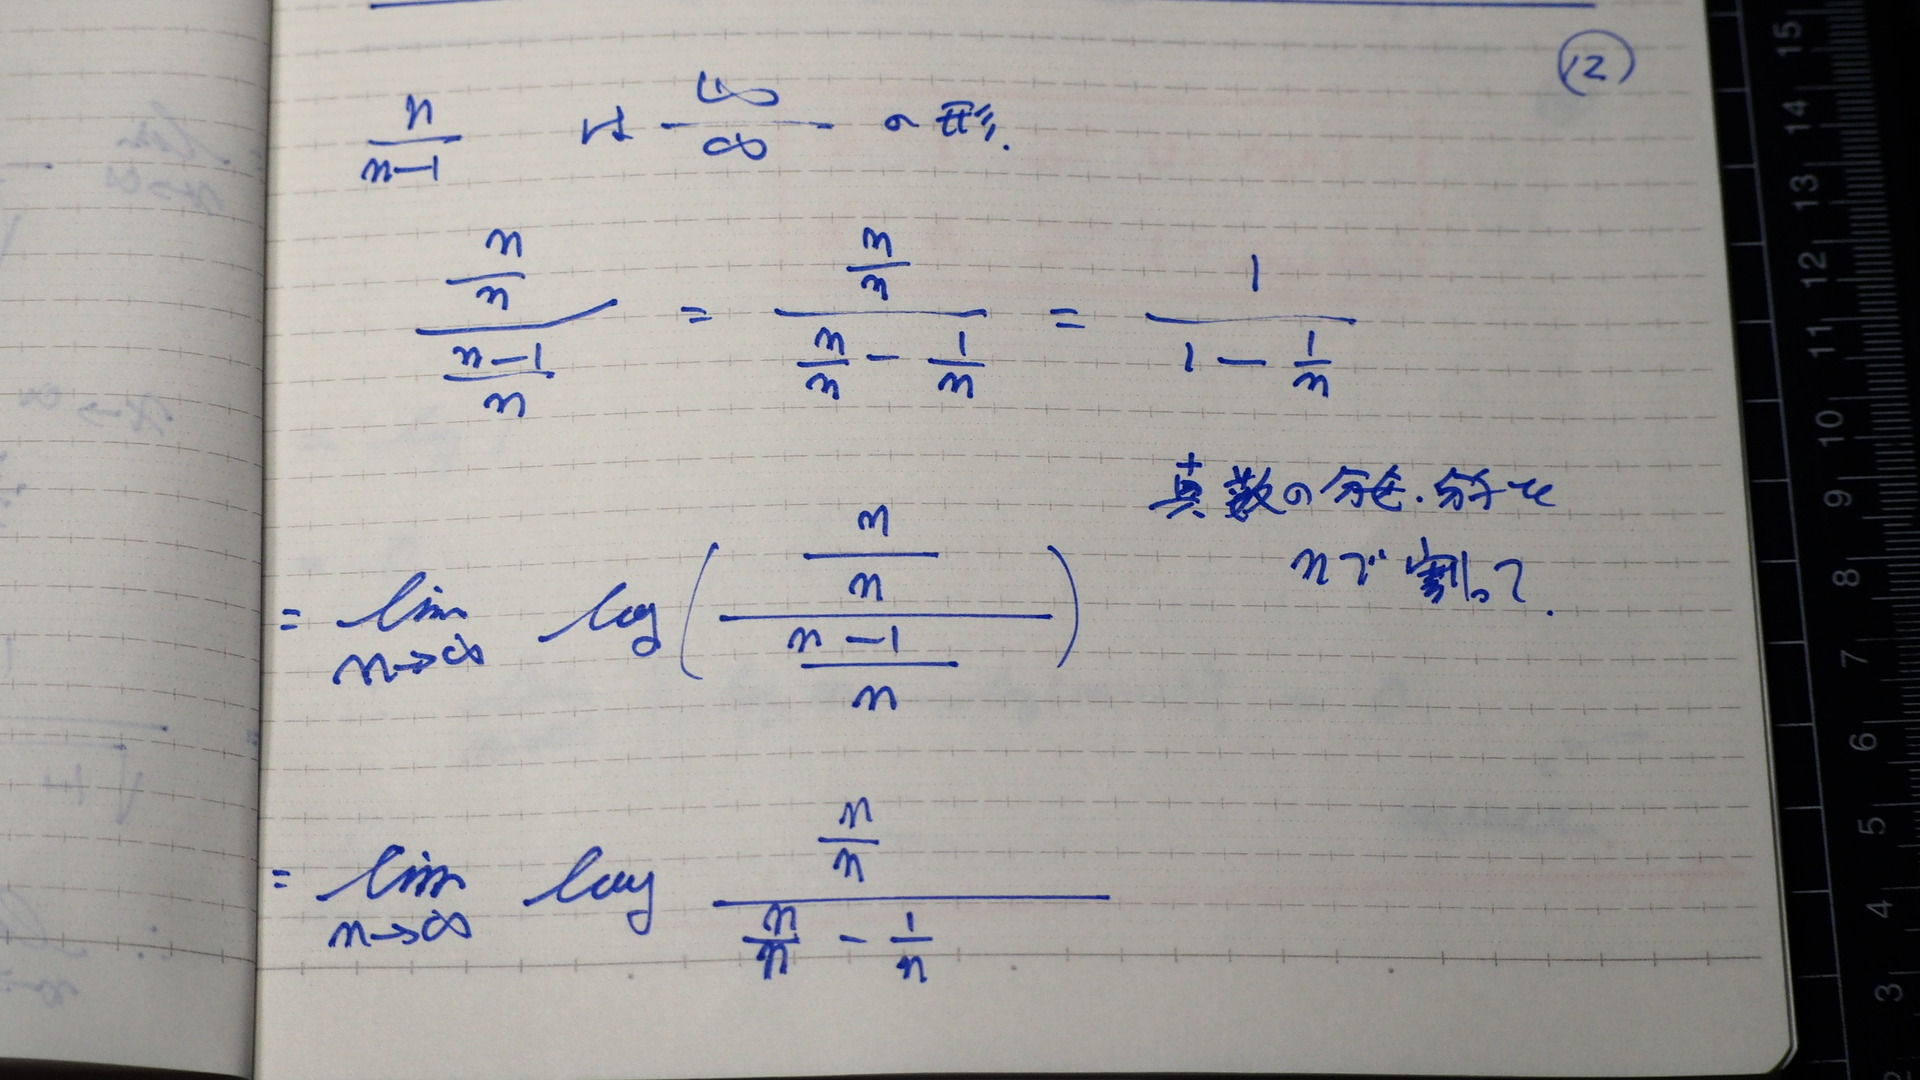 ⑫
n/(n-1) は ∞/∞ の形.
(n/n)/((n-1)/n) = (n/n)/(n/n - 1/n) = 1/(1 - 1/n)
真数の分母・分子を
nで割って.
= lim n→∞ log((n/n)/((n-1)/n))
= lim n→∞ log (n/n)/(n/n - 1/n)
15
14
13
12
11
10
9
8
7
6
5
4
3